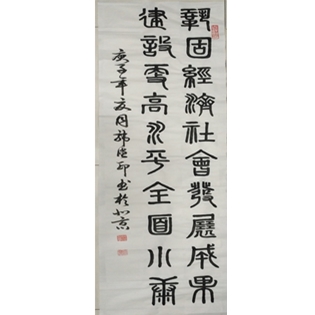 鞏固經濟社會發展成果
建設更高水平全面小康
庚子年夏月韩印书於北京